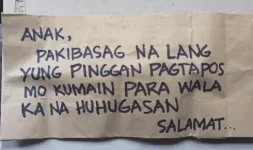 ANAK,
PAKIBASAG NA LANG
YUNG PINGGAN PAGTAPOS
MO KUMAIN PARA WALA
KA NA HUHUGASAN
SALAMAT...